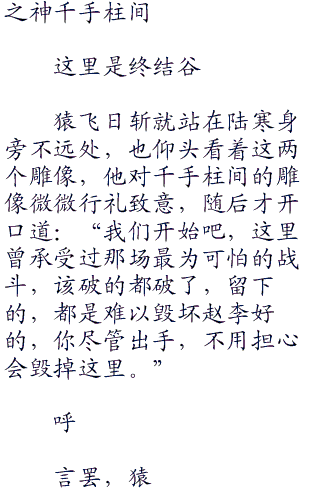 之神千手柱间
这里是终结谷
猿飞日斩就站在陆寒身
旁不远处，也仰头看着这两
个雕像，他对千手柱间的雕
像微微行礼致意，随后才开
口道：“我们开始吧，这里
曾承受过那场最为可怕的战
斗，该破的都破了，留下
的，都是难以毁坏赵李好
的，你尽管出手，不用担心
会毁掉这里。”
呼
言罢，猿